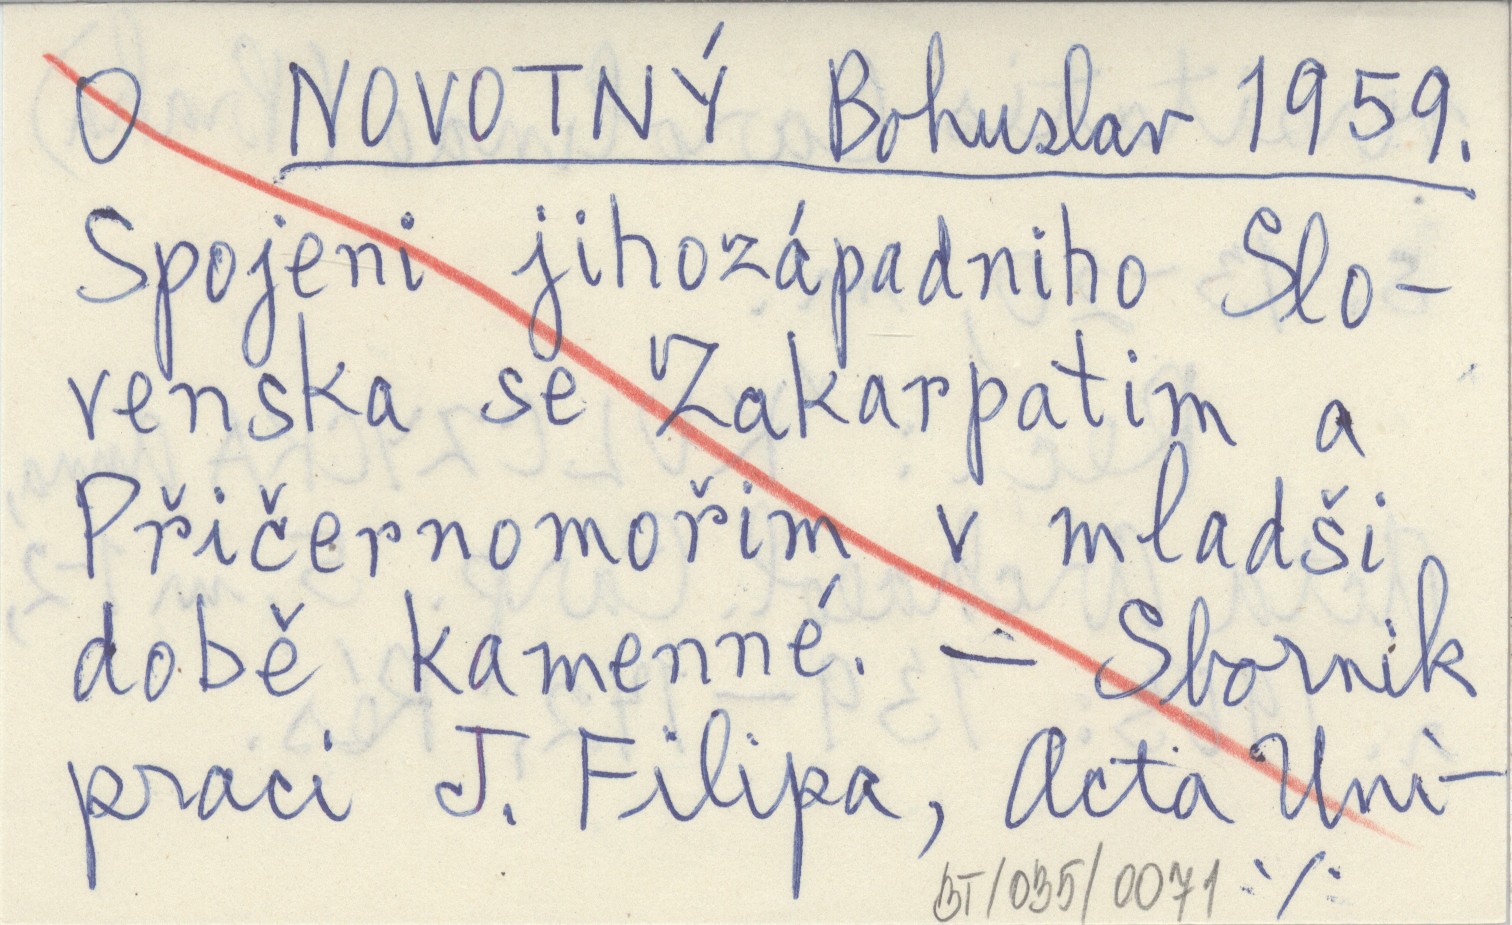 O NOVOTNÝ Bohuslav 1959.
Spojeni jihozápadniho Slo-
venska se Zakarpatim a
Přičernomořim v mladši
době kamenné. — Sbornik
praci J. Filipa, Acta Uni-
BT/035/0071 ·/·